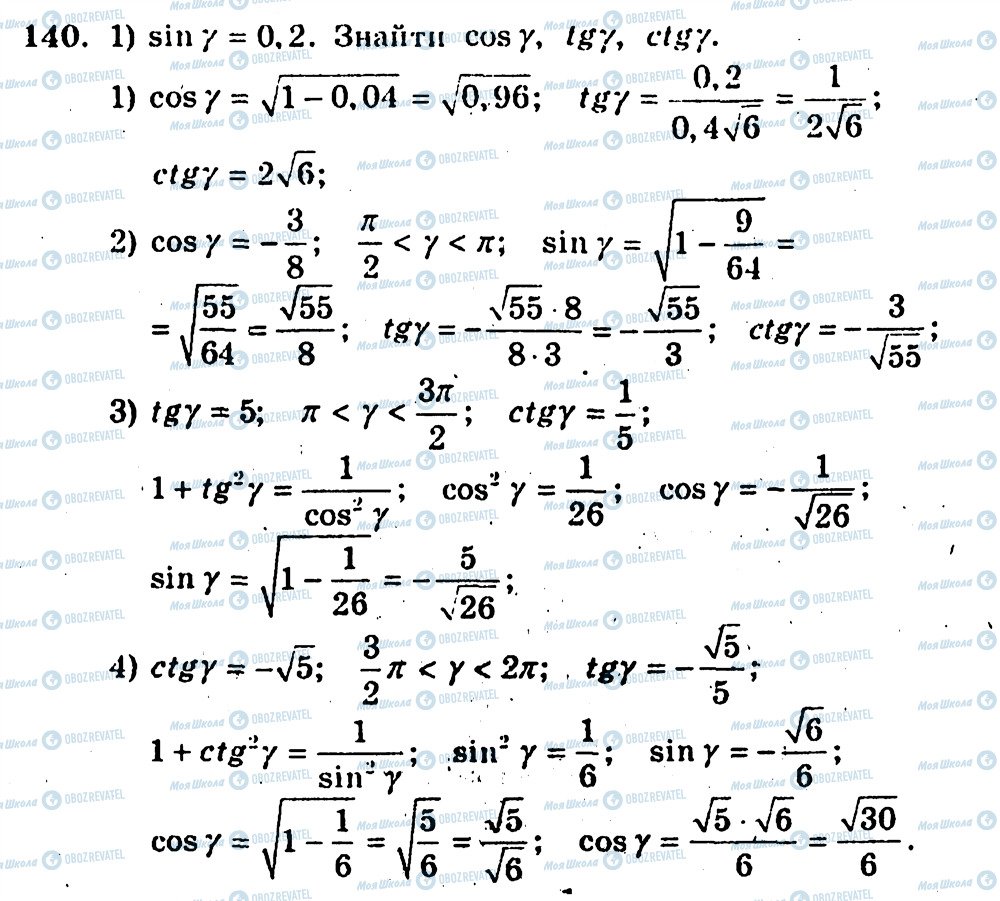 140. 1) sin γ = 0,2. Знайти cos γ, tgγ, ctgγ.
1) cos γ = √(1 − 0,04) = √0,96; tgγ = 0,2/(0,4√6) = 1/(2√6);
ctgγ = 2√6;
2) cos γ = −3/8; π/2 < γ < π; sin γ = √(1 − 9/64) =
= √(55/64) = √55/8; tgγ = −(√55 · 8)/(8 · 3) = −√55/3; ctgγ = −3/√55;
3) tgγ = 5; π < γ < 3π/2; ctgγ = 1/5;
1 + tg²γ = 1/cos² γ; cos² γ = 1/26; cos γ = −1/√26;
sin γ = √(1 − 1/26) = −5/√26;
4) ctgγ = −√5; 3/2 π < γ < 2π; tgγ = −√5/5;
1 + ctg²γ = 1/sin² γ; sin² γ = 1/6; sin γ = −√6/6;
cos γ = √(1 − 1/6) = √(5/6) = √5/√6; cos γ = (√5 · √6)/6 = √30/6.